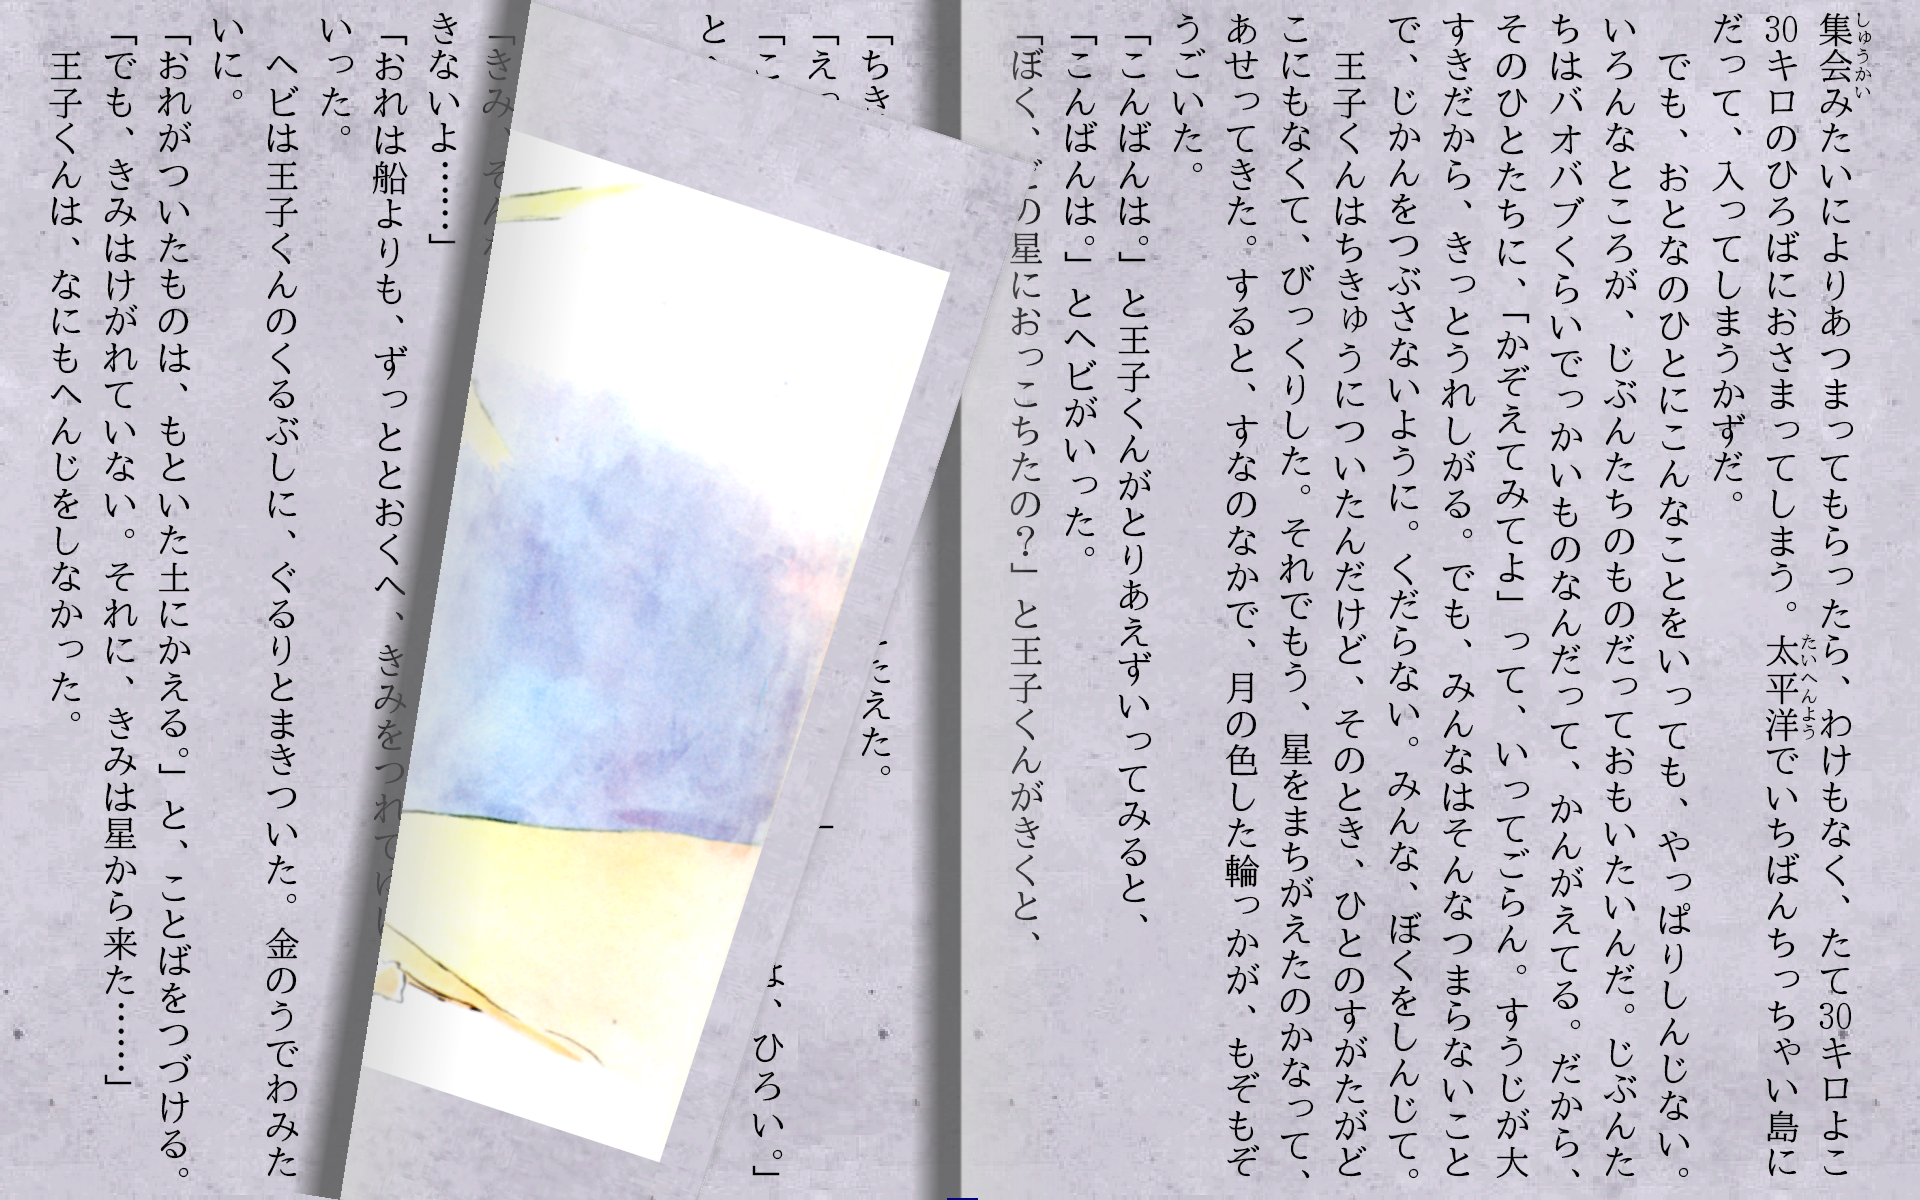 集会みたいによりあつまってもらったら、わけもなく、たて30キロよこ
しゅうかい
30キロのひろばにおさまってしまう。太平洋でいちばんちっちゃい島に
たいへんよう
だって、入ってしまうかずだ。
でも、おとなのひとにこんなことをいっても、やっぱりしんじない。
いろんなところが、じぶんたちのものだっておもいたいんだ。じぶんた
ちはバオバブくらいでっかいものなんだって、かんがえてる。だから、
そのひとたちに、「かぞえてみてよ」って、いってごらん。すうじが大
すきだから、きっとうれしがる。でも、みんなはそんなつまらないこと
で、じかんをつぶさないように。くだらない。みんな、ぼくをしんじて。
王子くんはちきゅうについたんだけど、そのとき、ひとのすがたがど
こにもなくて、びっくりした。それでもう、星をまちがえたのかなって、
あせってきた。すると、すなのなかで、月の色した輪っかが、もぞもぞ
うごいた。
「こんばんは。」と王子くんがとりあえずいってみると、
「こんばんは。」とヘビがいった。
「ぼく、どの星におっこちたの？」と王子くんがきくと、
「ちき
えた。
「えっ
「こ
よ、ひろい。」
と、
「きみ、そん
きないよ……」
「おれは船よりも、ずっととおくへ、きみをつれて
いった。
ヘビは王子くんのくるぶしに、ぐるりとまきついた。金のうでわみた
いに。
「おれがついたものは、もといた土にかえる。」と、ことばをつづける。
「でも、きみはけがれていない。それに、きみは星から来た……」
王子くんは、なにもへんじをしなかった。